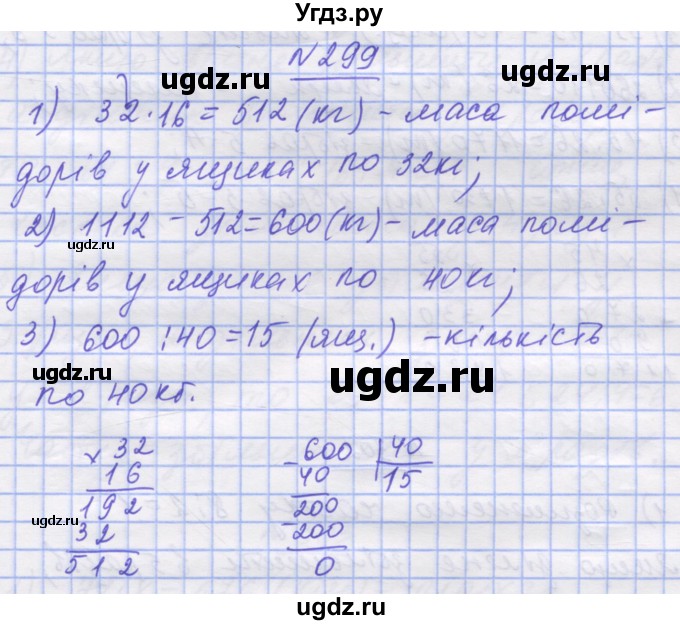 Угдз.ру
№299
ugdz.ru ugdz.ru
1) 32·16=512(кг) - маса помі-
дорів у ящиках по 32кг;
2) 1112 - 512=600(кг) - маса помі-
ugdz.ru
дорів у ящиках по 40кг;
3) 600:40=15 (ящ.) - кількість
ugdz.ru ugdz.ru
по 40кг.
× 32 - 600 | 40
16 40 15
192 200
ugdz.ru
32 -200
512 0
ugdz.ru
ugdz.ru